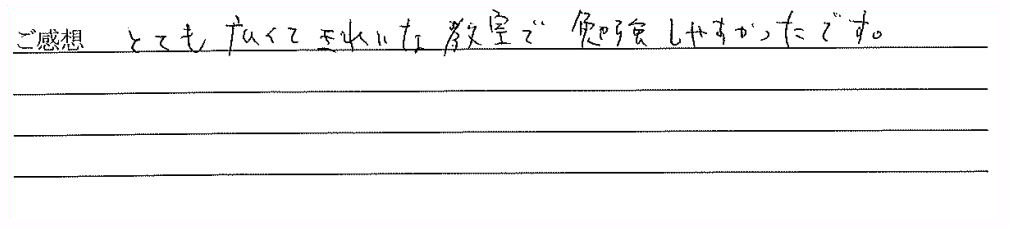 ご感想 とても広くてきれいな教室で勉強しやすかったです。